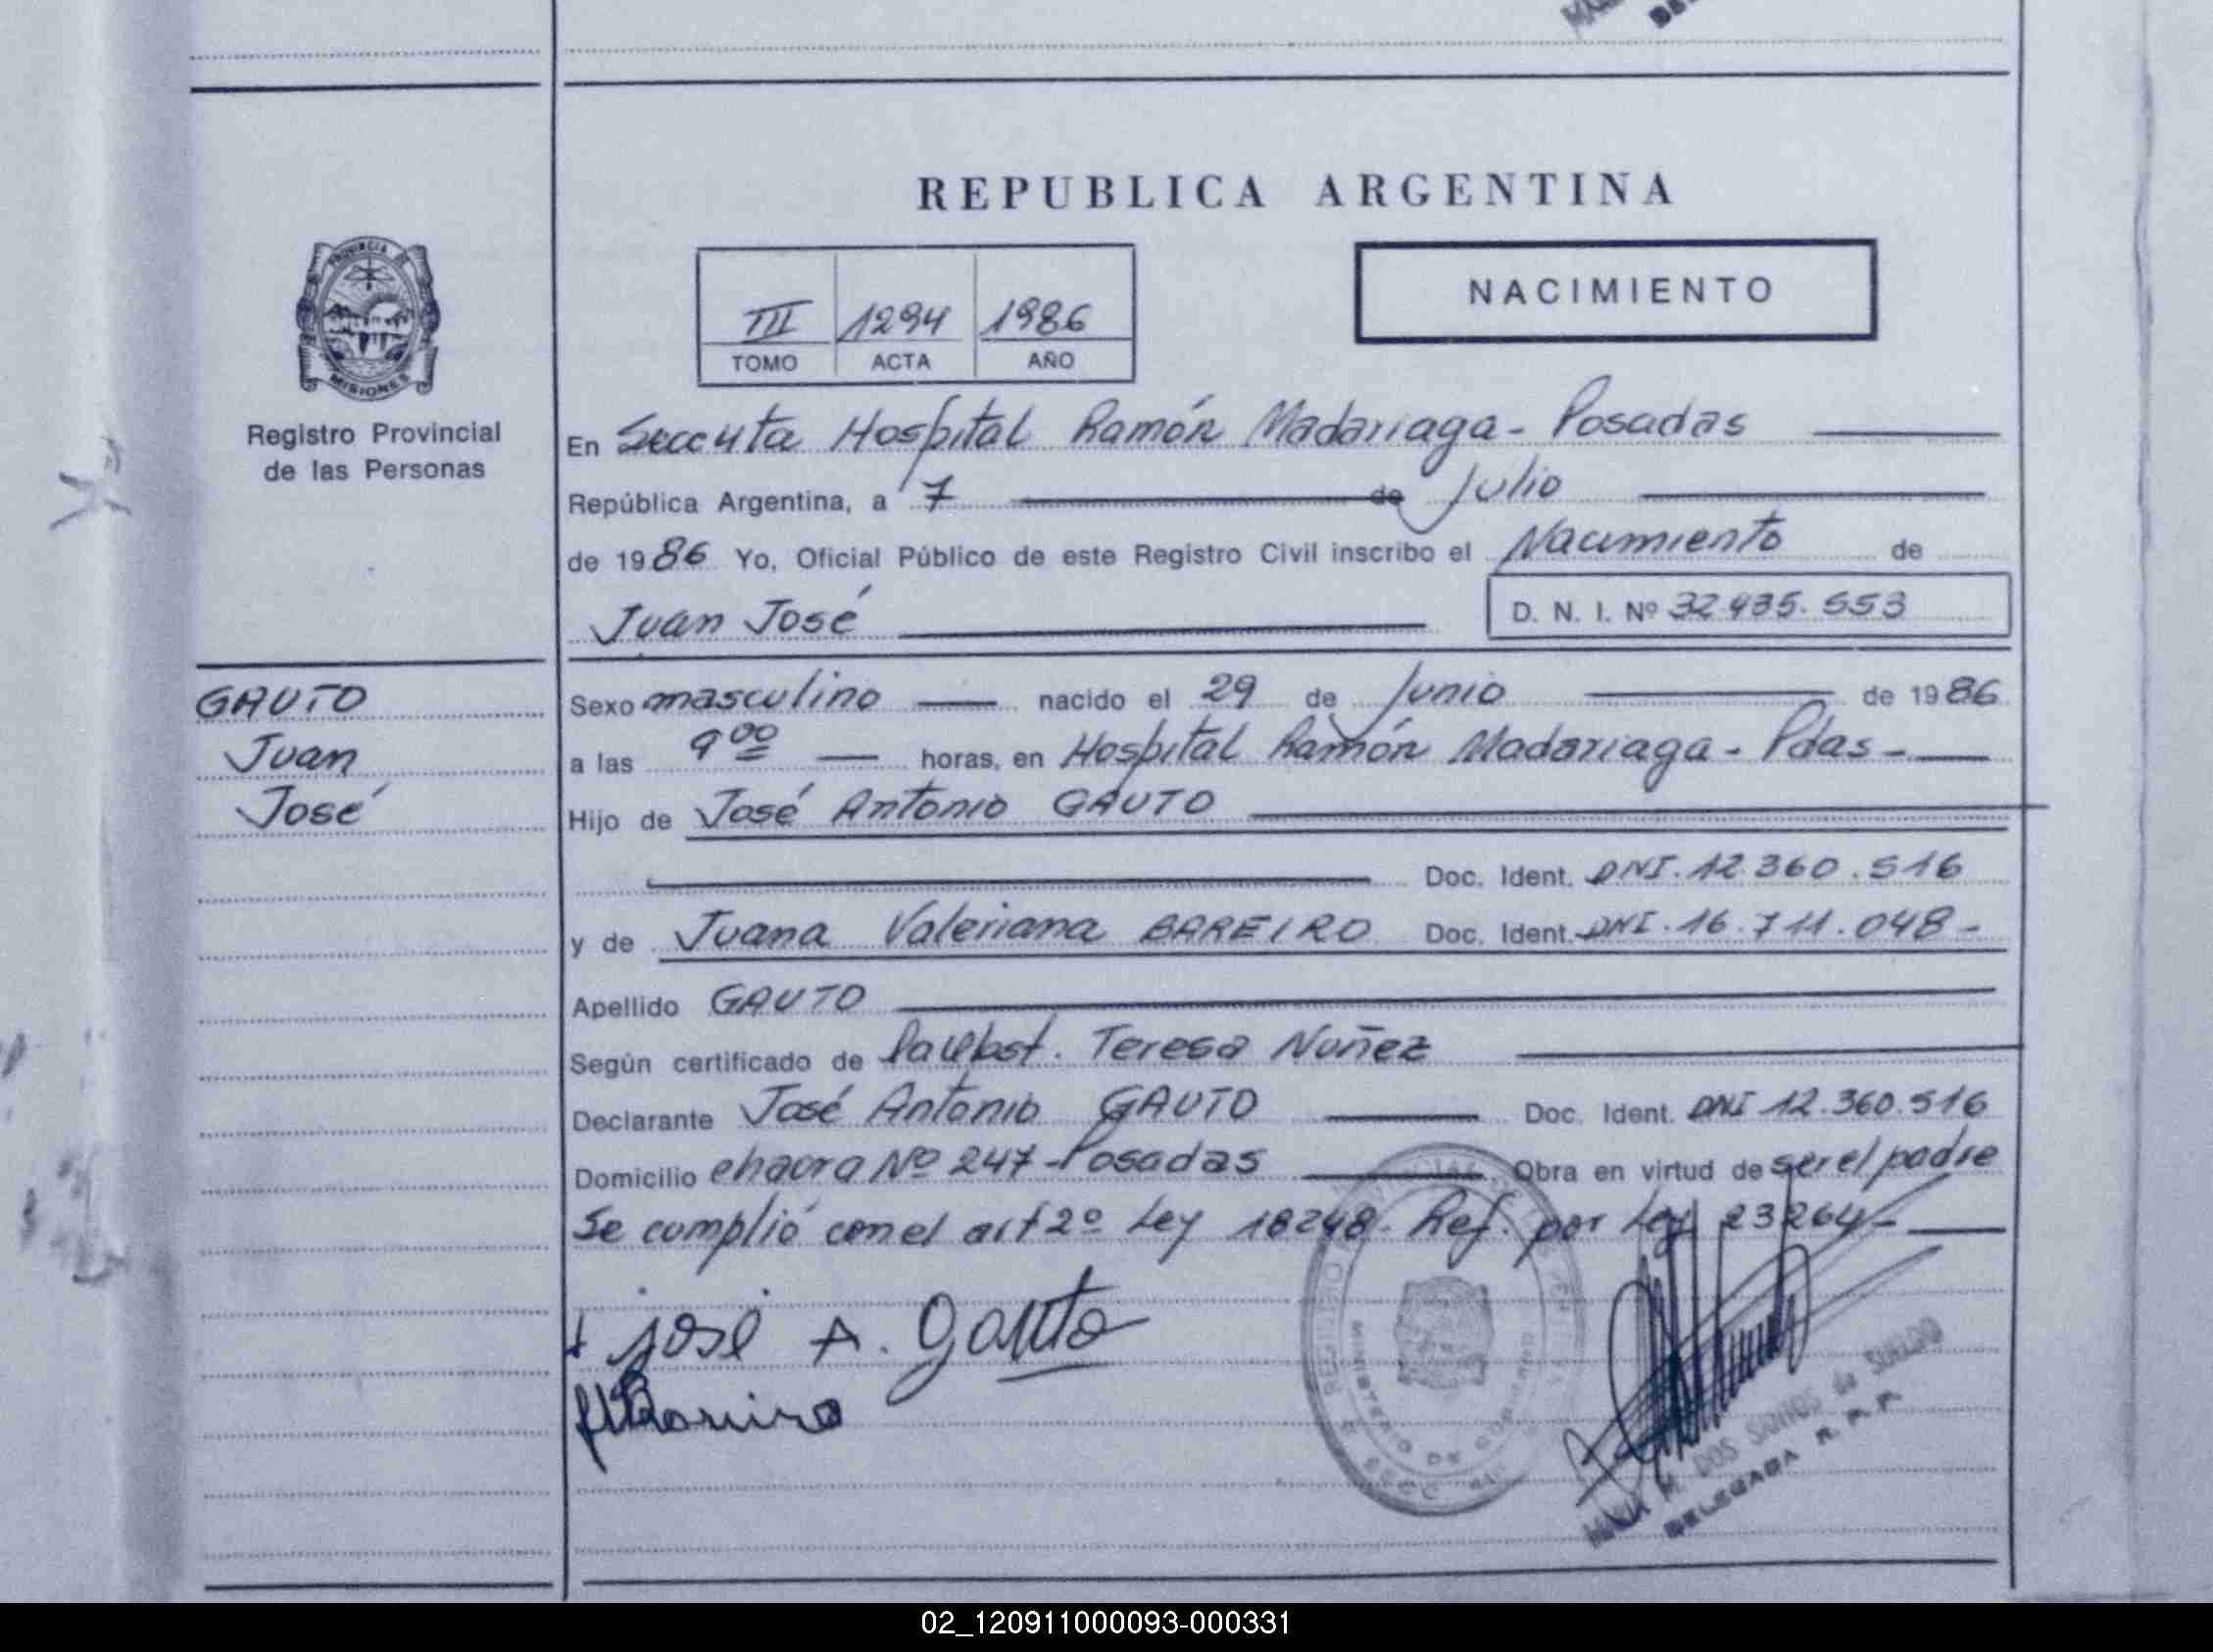 REPUBLICA ARGENTINA
PROVINCIA DE
MISIONES
Registro Provincial
de las Personas
III 1294 1986
TOMO ACTA AÑO
NACIMIENTO
En Seccuta Hospital Ramón Madariaga - Posadas
República Argentina, a 7 de Julio
de 1986 Yo, Oficial Público de este Registro Civil inscribo el Nacimiento de
Juan José
D. N. I. Nº 32.435.553
GAUTO
Juan
José
Sexo masculino nacido el 29 de Junio de 1986
a las 9 00 horas, en Hospital Ramón Madariaga - Pdas -
Hijo de José Antonio GAUTO
Doc. Ident. DNI. 12.360.516
y de Juana Valeriana BAREIRO Doc. Ident. DNI. 16.711.048 -
Apellido GAUTO
Según certificado de Teresa Nuñez
Declarante José Antonio GAUTO Doc. Ident. DNI 12.360.516
Domicilio chacra Nº 247 - Posadas Obra en virtud de ser el padre
Se cumplió con el art 2º Ley 18248. Ref. por Ley 23264 -
José A. Gauto
MINISTERIO DE
MARIA M. DOS SANTOS de
DELEGADA R. P. P.
02_120911000093-000331